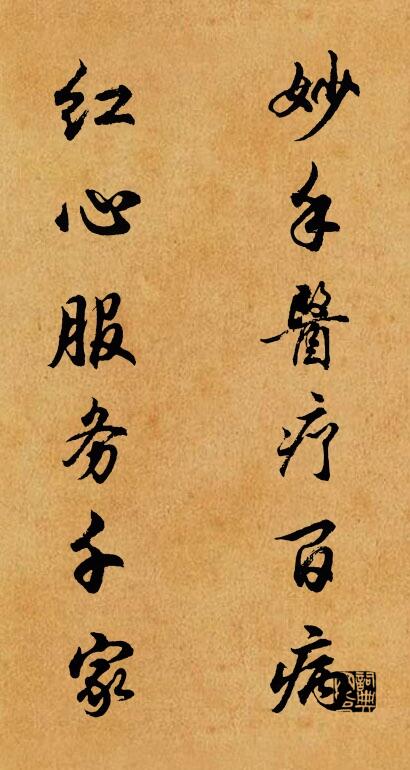 妙手醫疗百病
红心服务千家